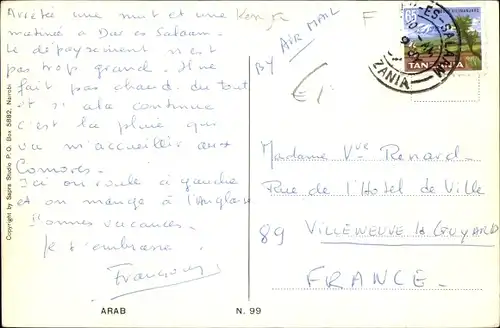 Arrêté une nuit et une
matinée à Dar es Salaam.
Le dépaysement n'est
pas trop grand. Il ne
fait pas chaud du tout
et si cela continue
c'est la pluie qui
va m'accueillir aux
Comores.
Ici on roule à gauche
et on mange à l'Anglaise
Bonnes vacances.
Je t'embrasse.
François
BY AIR MAIL
F
TANZANIA
Madame Vve Renard
Rue de l'Hotel de Ville
89 VILLENEUVE la GUYARD
FRANCE
Copyright by Sapra Studio P. O. Box 5882, Nairobi
ARAB
N. 99